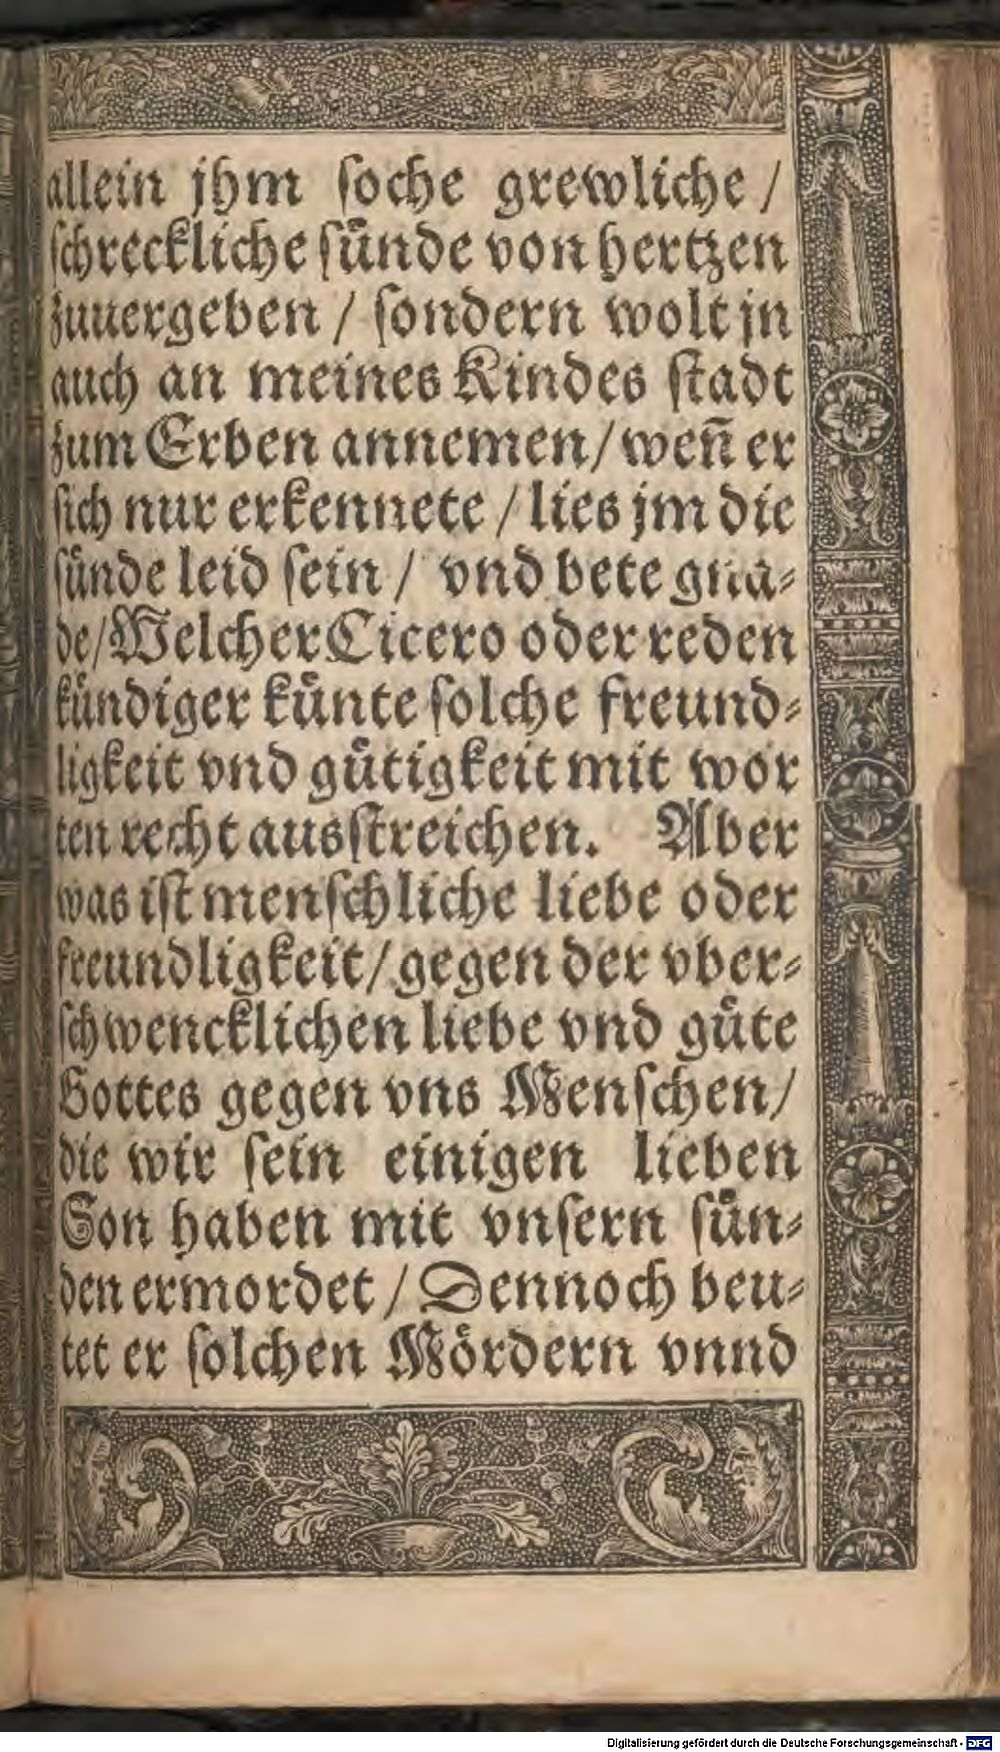 allein jhm ſoche grewliche /
ſchreckliche ſuͤnde von hertzen
zuuergeben / ſondern wolt jn
auch an meines Kindes ſtadt
zum Erben annemen / wen̄ er
ſich nur erkennete / lies jm die
ſuͤnde leid ſein / vnd bete gna⸗
de / Welcher Cicero oder reden
kuͤndiger kuͤnte ſolche freund⸗
ligkeit vnd guͤtigkeit mit wor
ten recht ausſtreichen. Aber
was iſt menſchliche liebe oder
freundligkeit / gegen der vber⸗
ſchwencklichen liebe vnd guͤte
Gottes gegen vns Menſchen /
die wir ſein einigen lieben
Son haben mit vnſern ſuͤn⸗
den ermordet / Dennoch beu⸗
tet er ſolchen Moͤrdern vnnd
Digitalisierung gefördert durch die Deutsche Forschungsgemeinschaft - DFG